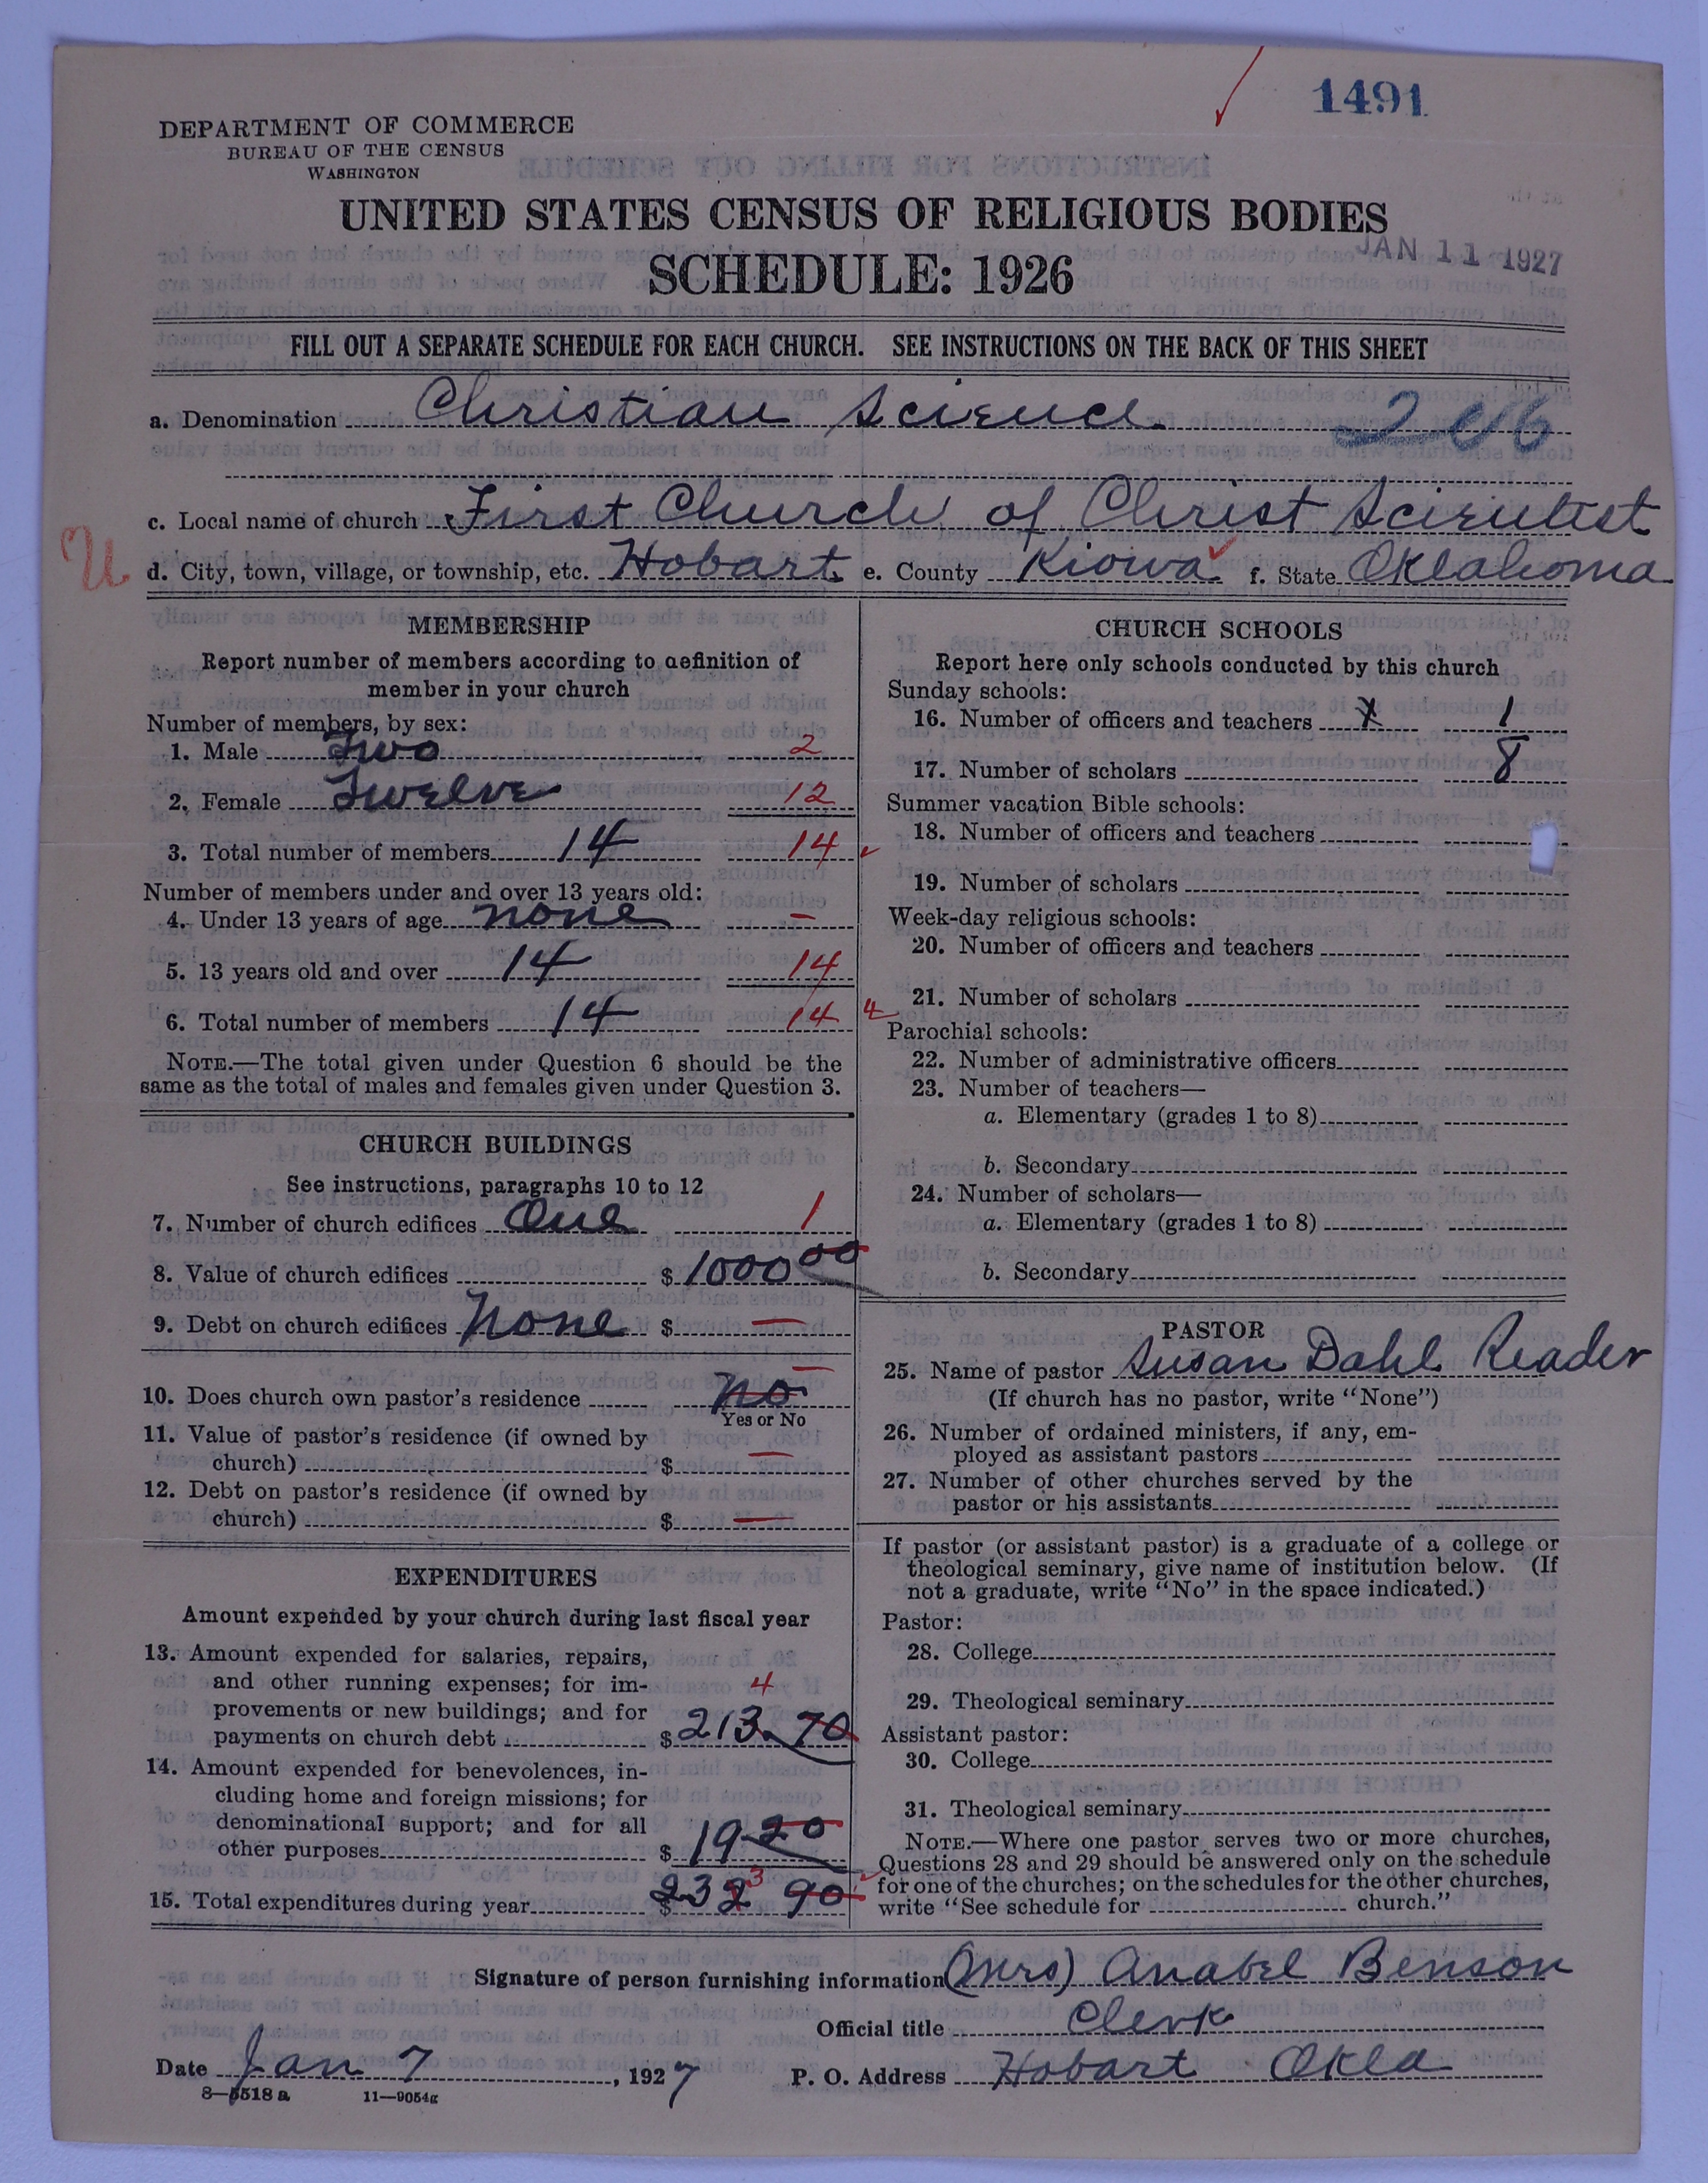 1491
DEPARTMENT OF COMMERCE
BUREAU OF THE CENSUS
WASHINGTON
UNITED STATES CENSUS OF RELIGIOUS BODIES
JAN 11 1927
SCHEDULE: 1926
FILL OUT A SEPARATE SCHEDULE FOR EACH CHURCH. SEE INSTRUCTIONS ON THE BACK OF THIS SHEET
a. Denomination Christian Science
c. Local name of church First Church of Christ Scientist
d. City, town, village, or township, etc. Hobart e. County Kiowa f. State Oklahoma
MEMBERSHIP
Report number of members according to definition of
member in your church
Number of members, by sex:
1. Male Two 2
2. Female Twelve 12
3. Total number of members 14 14
Number of members under and over 13 years old:
4. Under 13 years of age none –
5. 13 years old and over 14 14
6. Total number of members 14 14
NOTE.—The total given under Question 6 should be the
same as the total of males and females given under Question 3.
CHURCH BUILDINGS
See instructions, paragraphs 10 to 12
7. Number of church edifices One 1
8. Value of church edifices $ 1000 00
9. Debt on church edifices None $ —
10. Does church own pastor's residence no —
Yes or No
11. Value of pastor's residence (if owned by
church) $ —
12. Debt on pastor's residence (if owned by
church) $ —
EXPENDITURES
Amount expended by your church during last fiscal year
13. Amount expended for salaries, repairs,
and other running expenses; for im-
provements or new buildings; and for 4
payments on church debt $ 213.70
14. Amount expended for benevolences, in-
cluding home and foreign missions; for
denominational support; and for all
other purposes $ 19 20
15. Total expenditures during year $ 232 3 90
CHURCH SCHOOLS
Report here only schools conducted by this church
Sunday schools:
16. Number of officers and teachers 1
17. Number of scholars 8
Summer vacation Bible schools:
18. Number of officers and teachers
19. Number of scholars
Week-day religious schools:
20. Number of officers and teachers
21. Number of scholars
Parochial schools:
22. Number of administrative officers
23. Number of teachers—
a. Elementary (grades 1 to 8)
b. Secondary
24. Number of scholars—
a. Elementary (grades 1 to 8)
b. Secondary
PASTOR
25. Name of pastor Susan Dahl Reader
(If church has no pastor, write "None")
26. Number of ordained ministers, if any, em-
ployed as assistant pastors
27. Number of other churches served by the
pastor or his assistants
If pastor (or assistant pastor) is a graduate of a college or
theological seminary, give name of institution below. (If
not a graduate, write "No" in the space indicated.)
Pastor:
28. College
29. Theological seminary
Assistant pastor:
30. College
31. Theological seminary
NOTE.—Where one pastor serves two or more churches,
Questions 28 and 29 should be answered only on the schedule
for one of the churches; on the schedules for the other churches,
write "See schedule for church."
Signature of person furnishing information (Mrs) Anabel Benson
Official title Clerk
Date Jan 7, 1927 P. O. Address Hobart Okla
8—5518 a 11—9054g